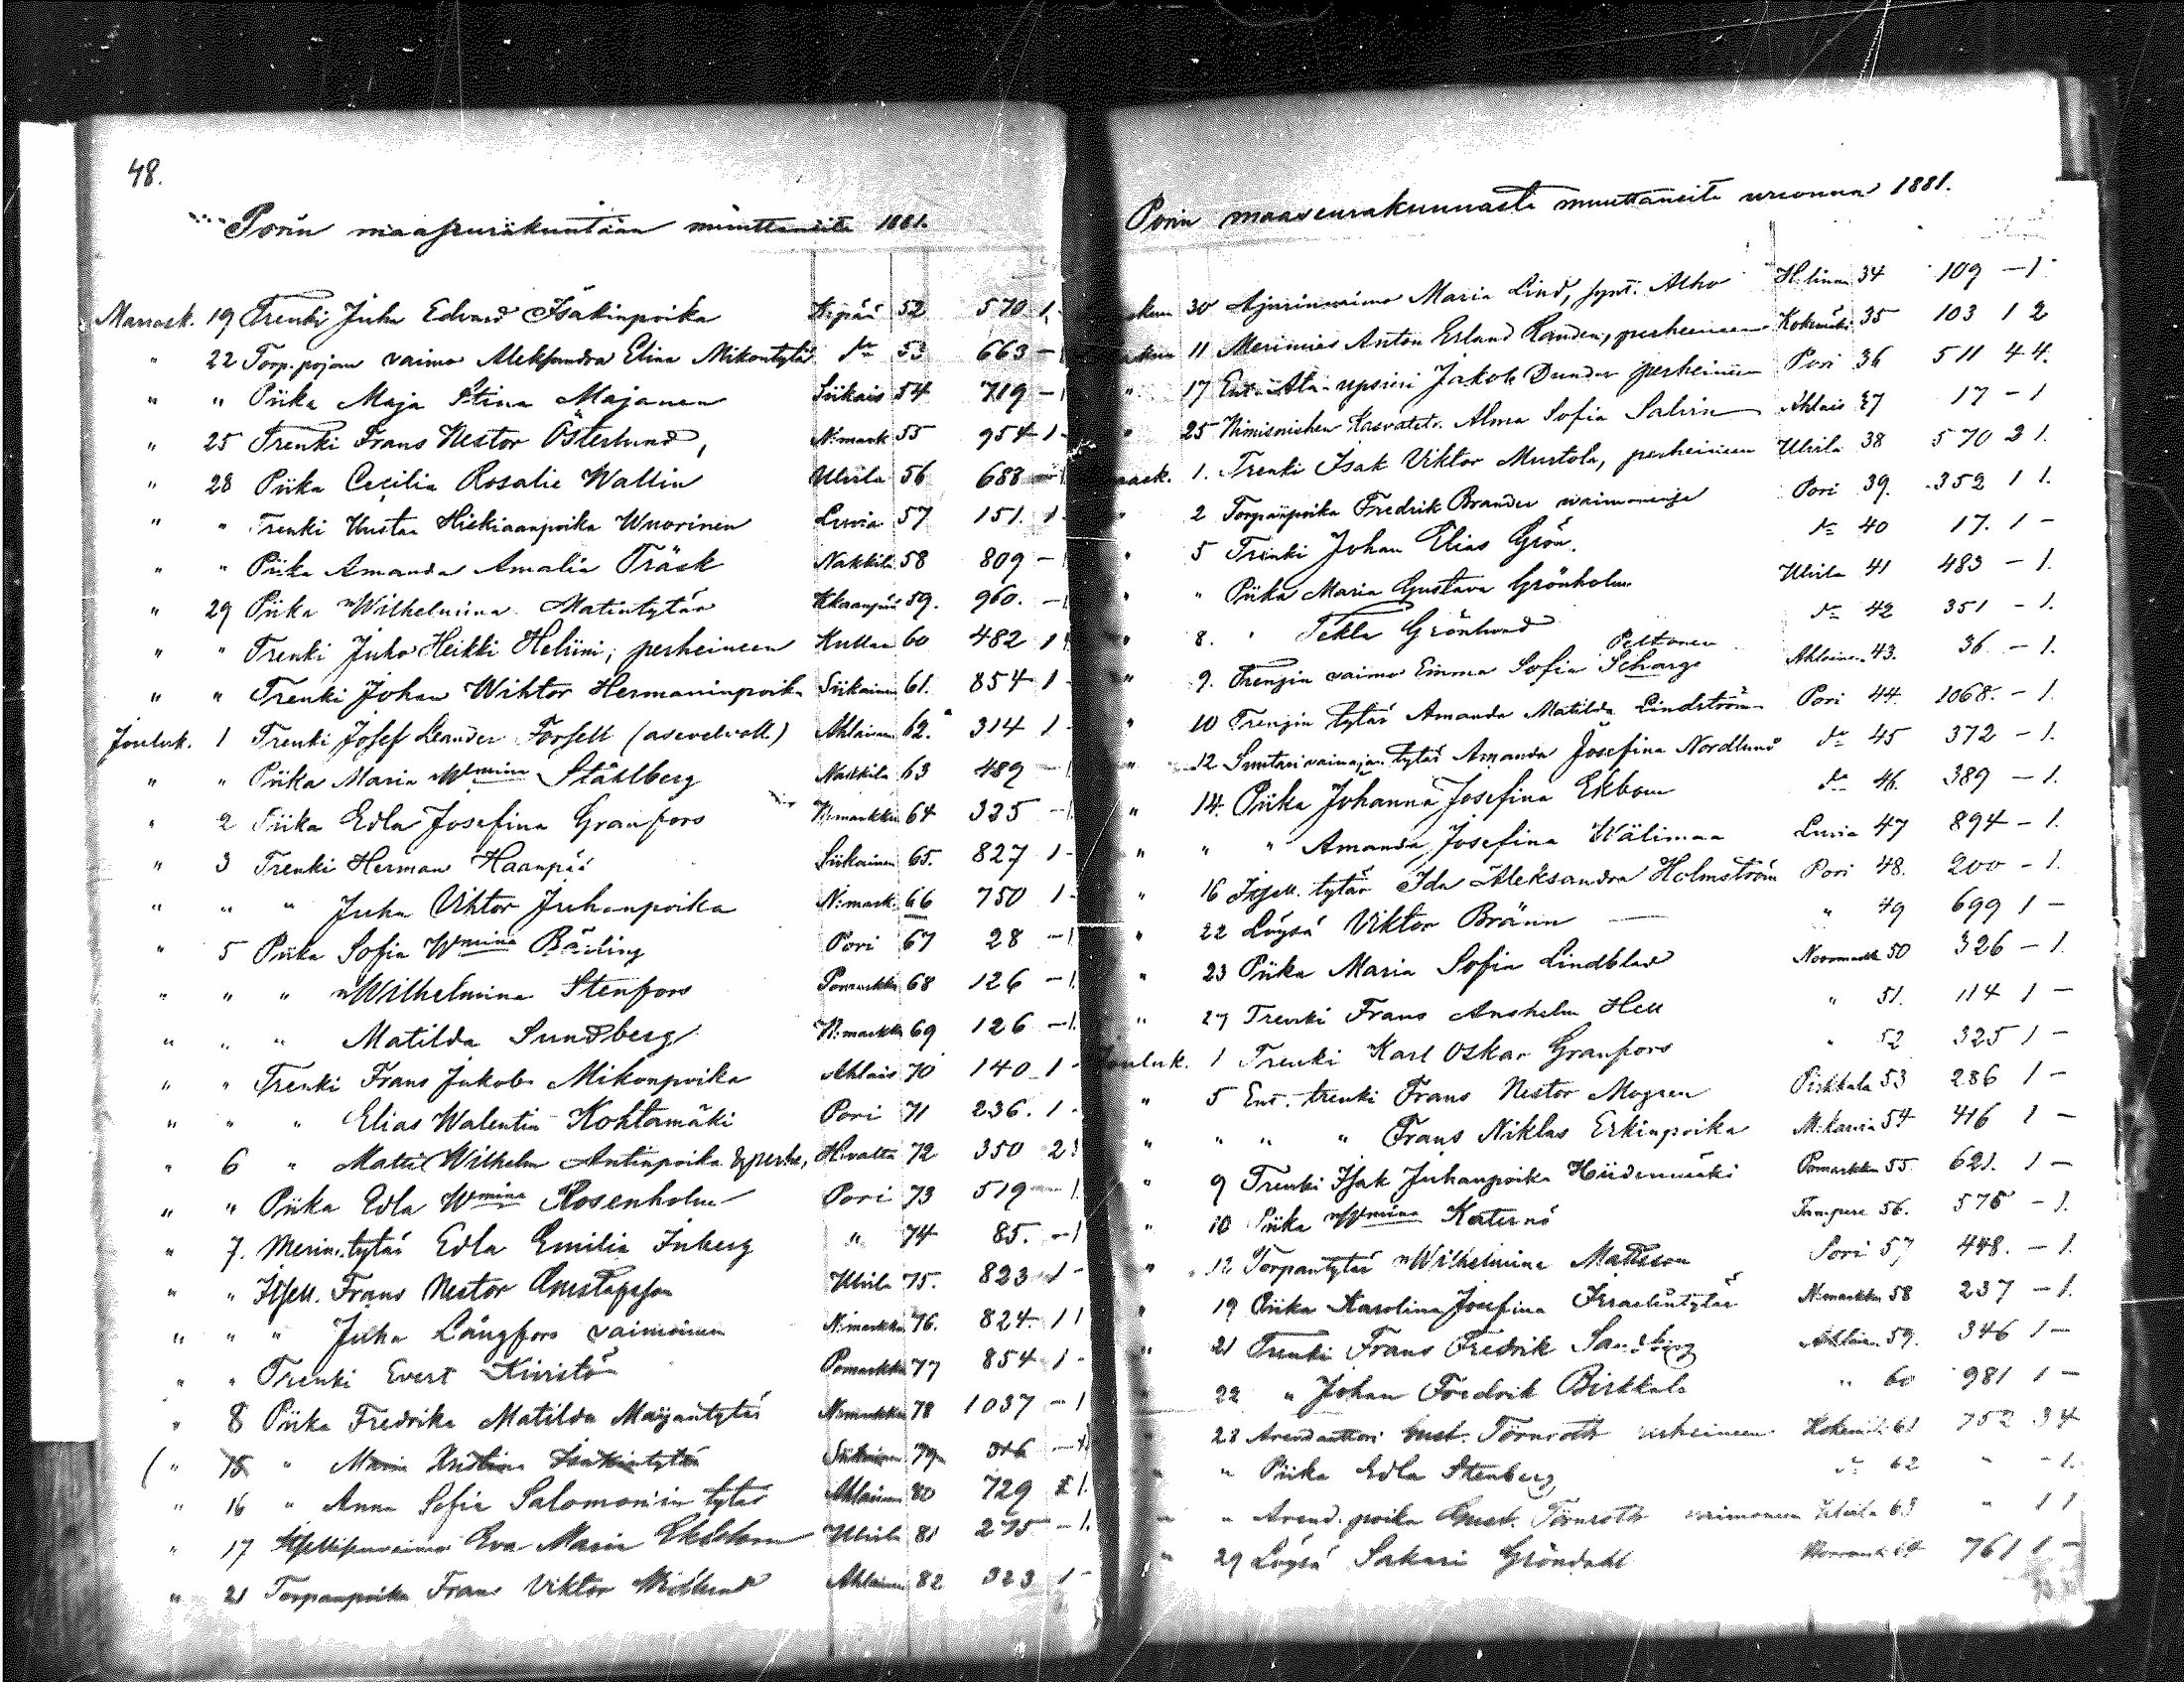 48.
Porin maaseurakuntaan muuttaneita 1881.
Marrask. 19 Trenki Juha Edvard Isakinpoika K:pää 52 570 1 -
" 22 Torp.pojan vaimo Aleksandra Elina Mikontytär do 53 663 - 1
" " Piika Maja Stina Majanen Siikais 54 719 - 1
" 25 Trenki Frans Nestor Österlund, N:mark 55 954 1 -
" 28 Piika Cecilia Rosalie Wallin Ulvila 56 688 -
" " Trenki Kustaa Hiskiaanpoika Wuorinen Luvia 57 151. 1 -
" " Piika Amanda Amalia Träsk Nakkila 58 809 -
" 29 Piika Wilhelmina Matintytär 59. 960. -
" " Trenki Juho Heikki Helsiini, perheineen Kullaa 60 482 1
" " Trenki Johan Wihtor Hermaninpoika Siikainen 61. 854 1 -
Jouluk. 1 Trenki Josef Leander Forsell (asevelvoll.) Ahlainen 62. 314 1
" " Piika Maria Wmina Ståhlberg Nakkila 63 489 -
" 2 Piika Edla Josefina Granfors N:markku 64 325 -
" 3 Trenki Herman Haanpää Siikainen 65. 827 1 -
" " " Juha Vihtor Juhanpoika N:mark. 66 750 1 -
" 5 Piika Sofia Wmina Bäcling Pori 67 28 - 1
" " " Wilhelmina Stenfors Pomarkku 68 126 - 1.
" " " Matilda Sundberg N:markku 69 126 - 1.
" " Trenki Frans Jakob Mikonpoika Ahlais 70 140 1 -
" " " Elias Walentin Kohtamäki Pori 71 236. 1 -
" 6 " Matti Wilhelm Antinpoika perhe, H:valta 72 350 2
" " Piika Edla Wmina Rosenholm Pori 73 519 - 1.
" 7. Merim. tytär Edla Emilia Inberg " 74 85. - 1
" " Itsell. Frans Nestor Gustafsson Ulvila 75. 823 1 -
" " " Juha Långfors vaimoineen N:markku 76. 824 1 1
" " Trenki Evert Kivistö Pomarkku 77 854 1 -
" 8 Piika Fredrika Matilda Maijantytär N:markku 78 1037 - 1
( " 15 " Maria Kristina Isakintytär Siikainen 79 346 - 1
" 16 " Anna Sofia Salomonin tytär Ahlainen 80 729 1.
" 17 Eva Maria Ekblom Ulvila 81 275 - 1.
" 21 Torpanpoika Frans Viktor Widlund Ahlainen 82 323 1 -
Porin maaseurakunnasta muuttaneita vuonna 1881.
30 Ajurinvaimo Maria Lind, synt. Alho H:linna 34 109 - 1
11 Merimies Anton Erland Randen, perheineen Kokemäki 35 103 1 2
" 17 Ent. Ala-upsieri Jakob Dunder perheineen Pori 36 511 4 4.
" 25 Nimismiehen Kasvatett. Alma Sofia Salvin Ahlais 37 17 - 1
1. Trenki Isak Viktor Murtola, perheineen Ulvila 38 570 3 1.
" 2 Torpanpoika Fredrik Brander vaimonensa Pori 39. 352 1 1.
" 5 Trenki Johan Elias Grön. do 40 17. 1 -
" " Piika Maria Gustava Grönholm Ulvila 41 483 - 1.
" 8. " Tekla Grönlund do 42 351 - 1.
" 9. Trengin vaimo Emma Sofia Scharge Peltonen Ahlainen 43. 36 - 1.
" 10 Trengin tytär Amanda Matilda Lindström Pori 44. 1068. - 1.
" 12 Suutarivainajan tytär Amanda Josefina Nordlund do 45 372 - 1.
" 14. Piika Johanna Josefina Ekbom do 46. 389 - 1.
" " " Amanda Josefina Wälimaa Luvia 47 894 - 1.
" 16 Itsell. tytär Ida Aleksandra Holmström Pori 48. 200 - 1.
" 22 Löysä Viktor Bränn " 49 699 1 -
" 23 Piika Maria Sofia Lindblad Noormark 50 326 - 1.
" 27 Trenki Frans Anshelm Hell " 51. 114 1 -
Jouluk. 1 Trenki Karl Oskar Granfors " 52 325 1 -
" 5 Ent. trenki Frans Nestor Mogren Pirkkala 53 286 1 -
" " " " Frans Niklas Erkinpoika M:karvia 54 416 1 -
" 9 Trenki Isak Juhanpoika Hiidenmäki Pomarkku 55. 621. 1 -
" 10 Piika Wmina Katernö Tampere 56. 575 - 1.
" 12 Torpantytär Wilhelmina Mattsson Pori 57 448. - 1.
" 19 Piika Karolina Josefina Israelintytär N:markku 58 237 - 1.
" 21 Trenki Frans Fredrik Sandberg Ahlainen 59. 346 1 -
22 " Johan Fredrik Birkkala " 60 981 1 -
28 Arendaattori Gust. Törnroth perheineen Kokemäki 61 752 3 4
" " Piika Edla Stenberg do 62 " - 1.
" " Arend. poika Gust. Törnroth vaimoneen Ulvila 63 " 1 1
" 29 Löysä Sakari Gröndahl Noormark 64 761 1 -